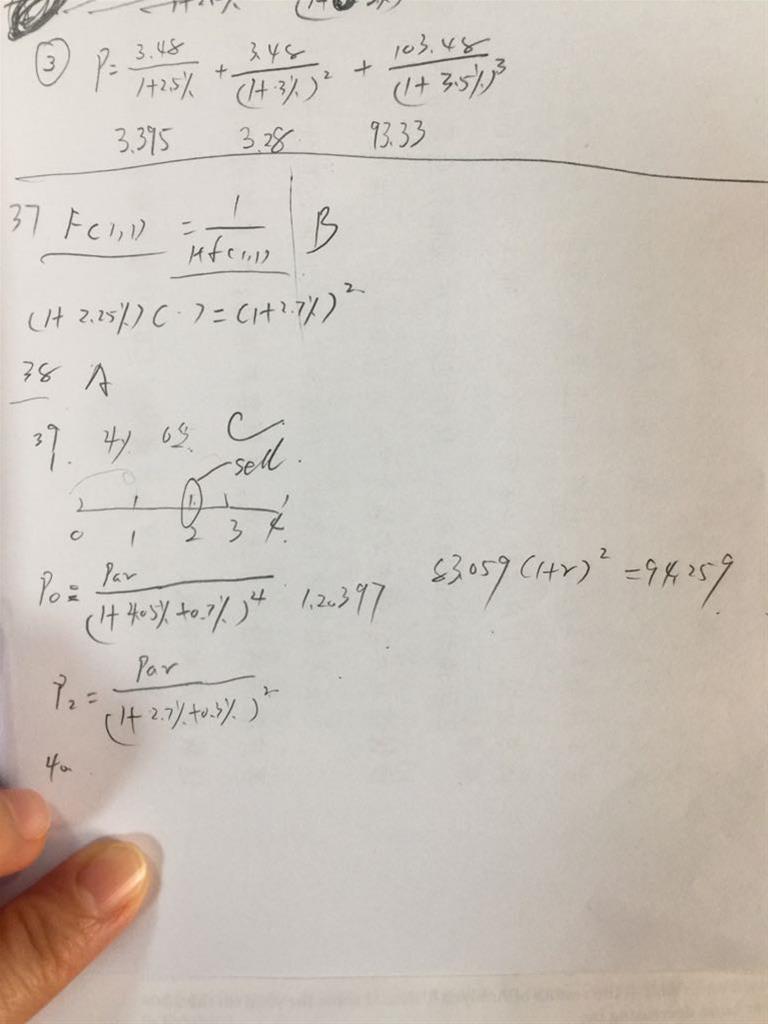 ③ P = 3.48/(1+2.5%) + 3.48/(1+3%)² + 103.48/(1+3.5%)³
3.395 3.28 93.33
37 F(1,1) = 1/(1+f(1,1)) B
(1+2.25%)( · ) = (1+2.7%)²
38 A
39. 4y C
sell.
0 1 2 3 4
P₀ = Par/(1+4.05%+0.7%)⁴ 1.20397 83.059(1+r)² = 94.259
P₂ = Par/(1+2.7%+0.3%)²
40